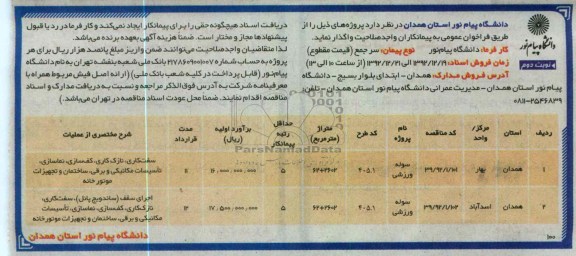 دانشگاه پیام نور
نوبت دوم
دانشگاه پیام نور استان همدان در نظر دارد پروژه‌های ذیل را از
طریق فراخوان عمومی به پیمانکاران واجدصلاحیت واگذار نماید.
کار فرما: دانشگاه پیام‌نور نوع پیمان: سر جمع (قیمت مقطوع)
زمان فروش اسناد: ۱۳۹۲/۱۲/۱۹ الی ۱۳۹۲/۱۲/۲۱ (از ساعت ۱۰ الی ۱۳)
آدرس فروش مدارک: همدان - ابتدای بلوار بسیج - دانشگاه
پیام نور استان همدان - مدیریت عمرانی دانشگاه پیام نور استان همدان - تلفن:
۰۸۱۱-۲۵۴۶۸۳۹
دریافت اسناد هیچگونه حقی را برای پیمانکار ایجاد نمی‌کند و کار فرما در رد یا قبول
پیشنهادها مجاز و مختار است. ضمنا هزینه آگهی بعهده برنده می‌باشد.
لذا متقاضیان واجدصلاحیت می‌توانند ضمن واریز مبلغ پانصد هزار ریال برای هر
پروژه به حساب شماره بانک ملی شعبه بنفشه تهران به نام دانشگاه
پیام‌نور (قابل پرداخت در کلیه شعب بانک ملی) (ارائه اصل فیش مربوط همراه با
معرفینامه شرکت) به آدرس فوق الذکر مراجعه و نسبت به دریافت مدارک و اسناد
مناقصه اقدام نمایند. ضمنا محل عودت اسناد مناقصه در تهران می‌باشد.
ردیف استان مرکز/واحد کد مناقصه نام پروژه کد طرح متراژ (مترمربع) حداقل رتبه پیمانکار برآورد اولیه (ریال) مدت قرارداد شرح مختصری از عملیات
۱ همدان بهار ۳۹/۹۲/۱/۱۰۱ سوله ورزشی ۴۰۵۰۱ ۵ ۱۶،۰۰۰،۰۰۰،۰۰۰ سفت‌کاری، نازک کاری، کف‌سازی، نماسازی، تأسیسات مکانیکی و برقی، ساختمان و تجهیزات موتورخانه
۲ همدان اسدآباد ۳۹/۹۲/۱/۱۰۲ سوله ورزشی ۴۰۵۰۱ ۵ ۱۷،۵۰۰،۰۰۰،۰۰۰ ۱۲ اجرای سقف (ساندویچ پانل)، سفت‌کاری، نازک‌کاری، کف‌سازی، نماسازی، تأسیسات مکانیکی و برقی، ساختمان و تجهیزات موتورخانه
دانشگاه پیام نور استان همدان
ParsNamadData